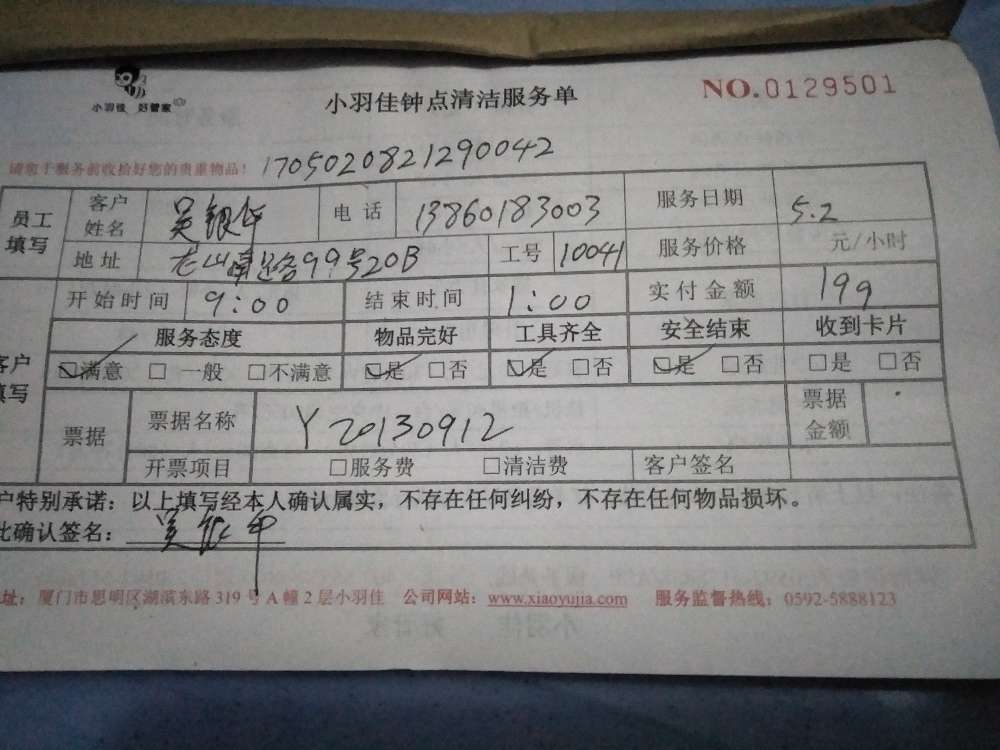 小羽佳 好管家
小羽佳钟点清洁服务单
NO.0129501
请您于服务前收拾好您的贵重物品！ 1705020821290042
员工填写 客户姓名 吴银 电话 13860183003 服务日期 5.2
地址 山南路99号20B 工号 10041 服务价格 元/小时
开始时间 9:00 结束时间 1:00 实付金额 199
客户填写 服务态度 物品完好 工具齐全 安全结束 收到卡片
☑满意 □一般 □不满意 ☑是 □否 ☑是 □否 ☑是 □否 □是 □否
票据 票据名称 Y20130912 票据金额
开票项目 □服务费 □清洁费 客户签名
户特别承诺：以上填写经本人确认属实，不存在任何纠纷，不存在任何物品损坏。
此确认签名：吴银
址：厦门市思明区湖滨东路319号A幢2层小羽佳 公司网站：www.xiaoyujia.com 服务监督热线：0592-5888123